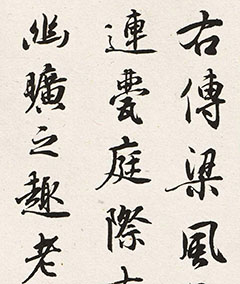 右傳梁風
連甍庭際
幽曠之趣老